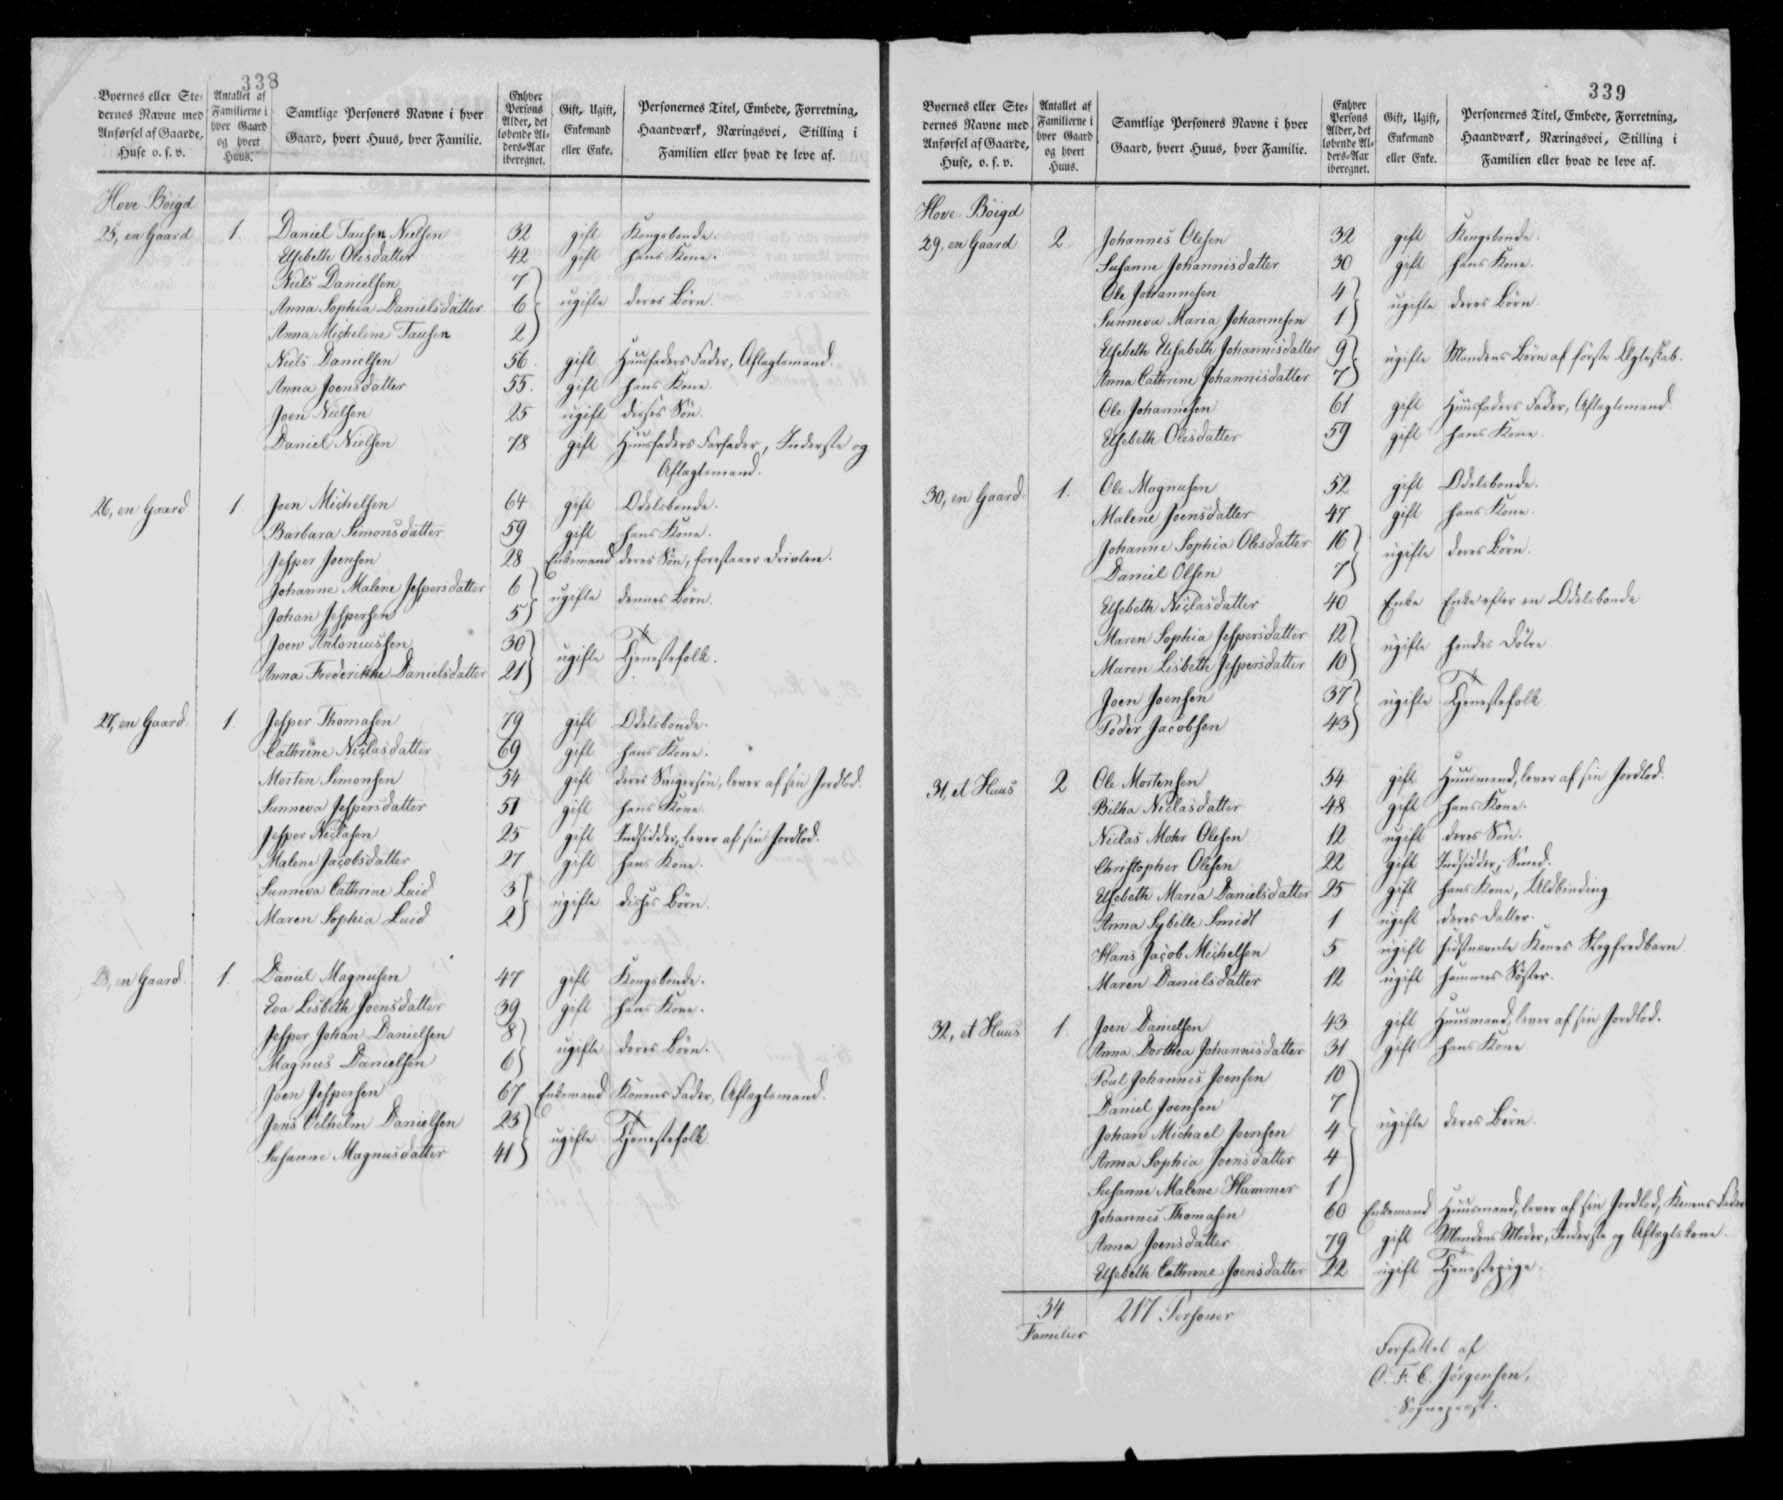 338
Byernes eller Ste-
dernes Navne med
Anførsel af Gaarde,
Huse o. s. v.
Antallet af
Familierne i
hver Gaard
og hvert
Huus.
Samtlige Personers Navne i hver
Gaard, hvert Huus, hver Familie.
Enhver
Persons
Alder, det
løbende Al-
ders-Aar
iberegnet.
Gift, Ugift,
Enkemand
eller Enke.
Personernes Titel, Embede, Forretning,
Haandværk, Næringsvei, Stilling i
Familien eller hvad de leve af.
Hove Böigd
25, en Gaard 1. Daniel Tausen Nielsen 32 gift Kongsbonde.
Elsebeth Olesdatter 42 gift hans Kone.
Niels Danielsen 7
Anna Sophia Danielsdatter 6 ugifte deres Börn.
Anna Michelene Tausen 2
Niels Danielsen 56. gift Huusfaders Fader, Aftægtsmand.
Anna Joensdatter 55. gift hans Kone.
Joen Nielsen 25 ugift disses Sön.
Daniel Nielsen 78 gift Huusfaders Farfader, Inderste og
Aftægtsmand.
26, en Gaard 1 Joen Michelsen 64 gift Odelsbonde.
Barbara Simonsdatter 59 gift hans Kone.
Jesper Joensen 28 Enkemand deres Sön, forestaaer Driвten.
Johanne Malene Jespersdatter 6
ugifte dennes Börn.
Johan Jespersen 5
Joen Antoniussen 30
ugifte Tjenestefolk.
Anna Frederikke Danielsdatter 21
27, en Gaard. 1. Jesper Thomasen 79 gift Odelsbonde.
Cathrine Niclasdatter 69 gift hans Kone.
Morten Simonsen 54 gift deres Svigersön, lever af sin Jordlod.
Sunneva Jespersdatter 51 gift hans Kone
Jesper Niclasen 25 gift Indsidder, lever af sin Jordlod.
Malene Jacobsdatter 27 gift hans Kone.
Sunneva Cathrine Luid 3
ugifte disses Börn.
Maren Sophia Luid 2
28, en Gaard 1. Daniel Magnusen 47 gift Kongsbonde.
Eva Lisbeth Joensdatter 39 gift hans Kone.
Jesper Johan Danielsen 8
ugifte deres Börn.
Magnus Danielsen 6
Joen Jespersen 67 Enkemand Konens Fader, Aftægtsmand.
Jens Vilhelm Danielsen 23
ugifte Tjenestefolk
Susanne Magnusdatter 41
339
Byernes eller Ste-
dernes Navne med
Anførsel af Gaarde,
Huse, o. s. v.
Antallet af
Familierne i
hver Gaard
og hvert
Huus.
Samtlige Personers Navne i hver
Gaard, hvert Huus, hver Familie.
Enhver
Persons
Alder, det
løbende Al-
ders-Aar
iberegnet.
Gift, Ugift,
Enkemand
eller Enke.
Personernes Titel, Embede, Forretning,
Haandværk, Næringsvei, Stilling i
Familien eller hvad de leve af.
Hove Böigd
29, en Gaard 2 Johannes Olesen 32 gift Kongsbonde.
Susanne Johannisdatter 30 gift hans Kone.
Ole Johannesen 4
ugifte deres Börn.
Sunneva Maria Johannesen 1
Elsebeth Elisabeth Johannisdatter 9
ugifte Mandens Börn af förste Ægteskab.
Anna Cathrine Johannisdatter 7
Ole Johannesen 61 gift Huusfaders Fader, Aftægtsmand
Elsebeth Olesdatter 59 gift hans Kone
30, en Gaard. 1. Ole Magnusen 52 gift Odelsbonde.
Malene Joensdatter 47 gift hans Kone.
Johanne Sophia Olesdatter 16
ugifte deres Börn.
Daniel Olsen 7
Elsebeth Niclasdatter 40 Enke Enke efter en Odelsbonde
Maren Sophia Jespersdatter 12
ugifte hendes Dötre
Maren Lisbeth Jespersdatter 10
Joen Joensen 37
ugifte Tjenestefolk
Peder Jacobsen 43
31, et Huus 2 Ole Mortensen 54 gift Huusmand, lever af sin Jordlod.
Bilha Niclasdatter 48 gift hans Kone.
Niclas Mohr Olesen 12 ugift deres Sön.
Christopher Olesen 22 gift Indsidder, Smed.
Elsebeth Maria Danielsdatter 25 gift hans Kone, Uldbinding
Anna Sybille Smidt 1 ugift deres Datter.
Hans Jacob Michelsen 5 ugift sidstnævnte Kones Slegfredbarn
Maren Danielsdatter 12 ugift hannes Söster.
32, et Huus 1. Joen Danielsen 43 gift Huusmand, lever af sin Jordlod.
Anna Dorthea Johannisdatter 31 gift hans Kone
Poul Johannes Joensen 10
Daniel Joensen 7
ugifte deres Börn.
Johan Michael Joensen 4
Anna Sophia Joensdatter 4
Susanne Malene Hammer 1
Johannes Thomasen 60 Enkemand Huusmand, lever af sin Jordlod, Konens Fader
Anna Joensdatter 79 gift Mandens Moder, Inderste og Aftægtskone.
Elsebeth Cathrine Joensdatter 22 ugift Tjenestepige.
34 217 Personer
Familier
Forfattet af
C. F. C. Jörgensen,
Sogneprest.